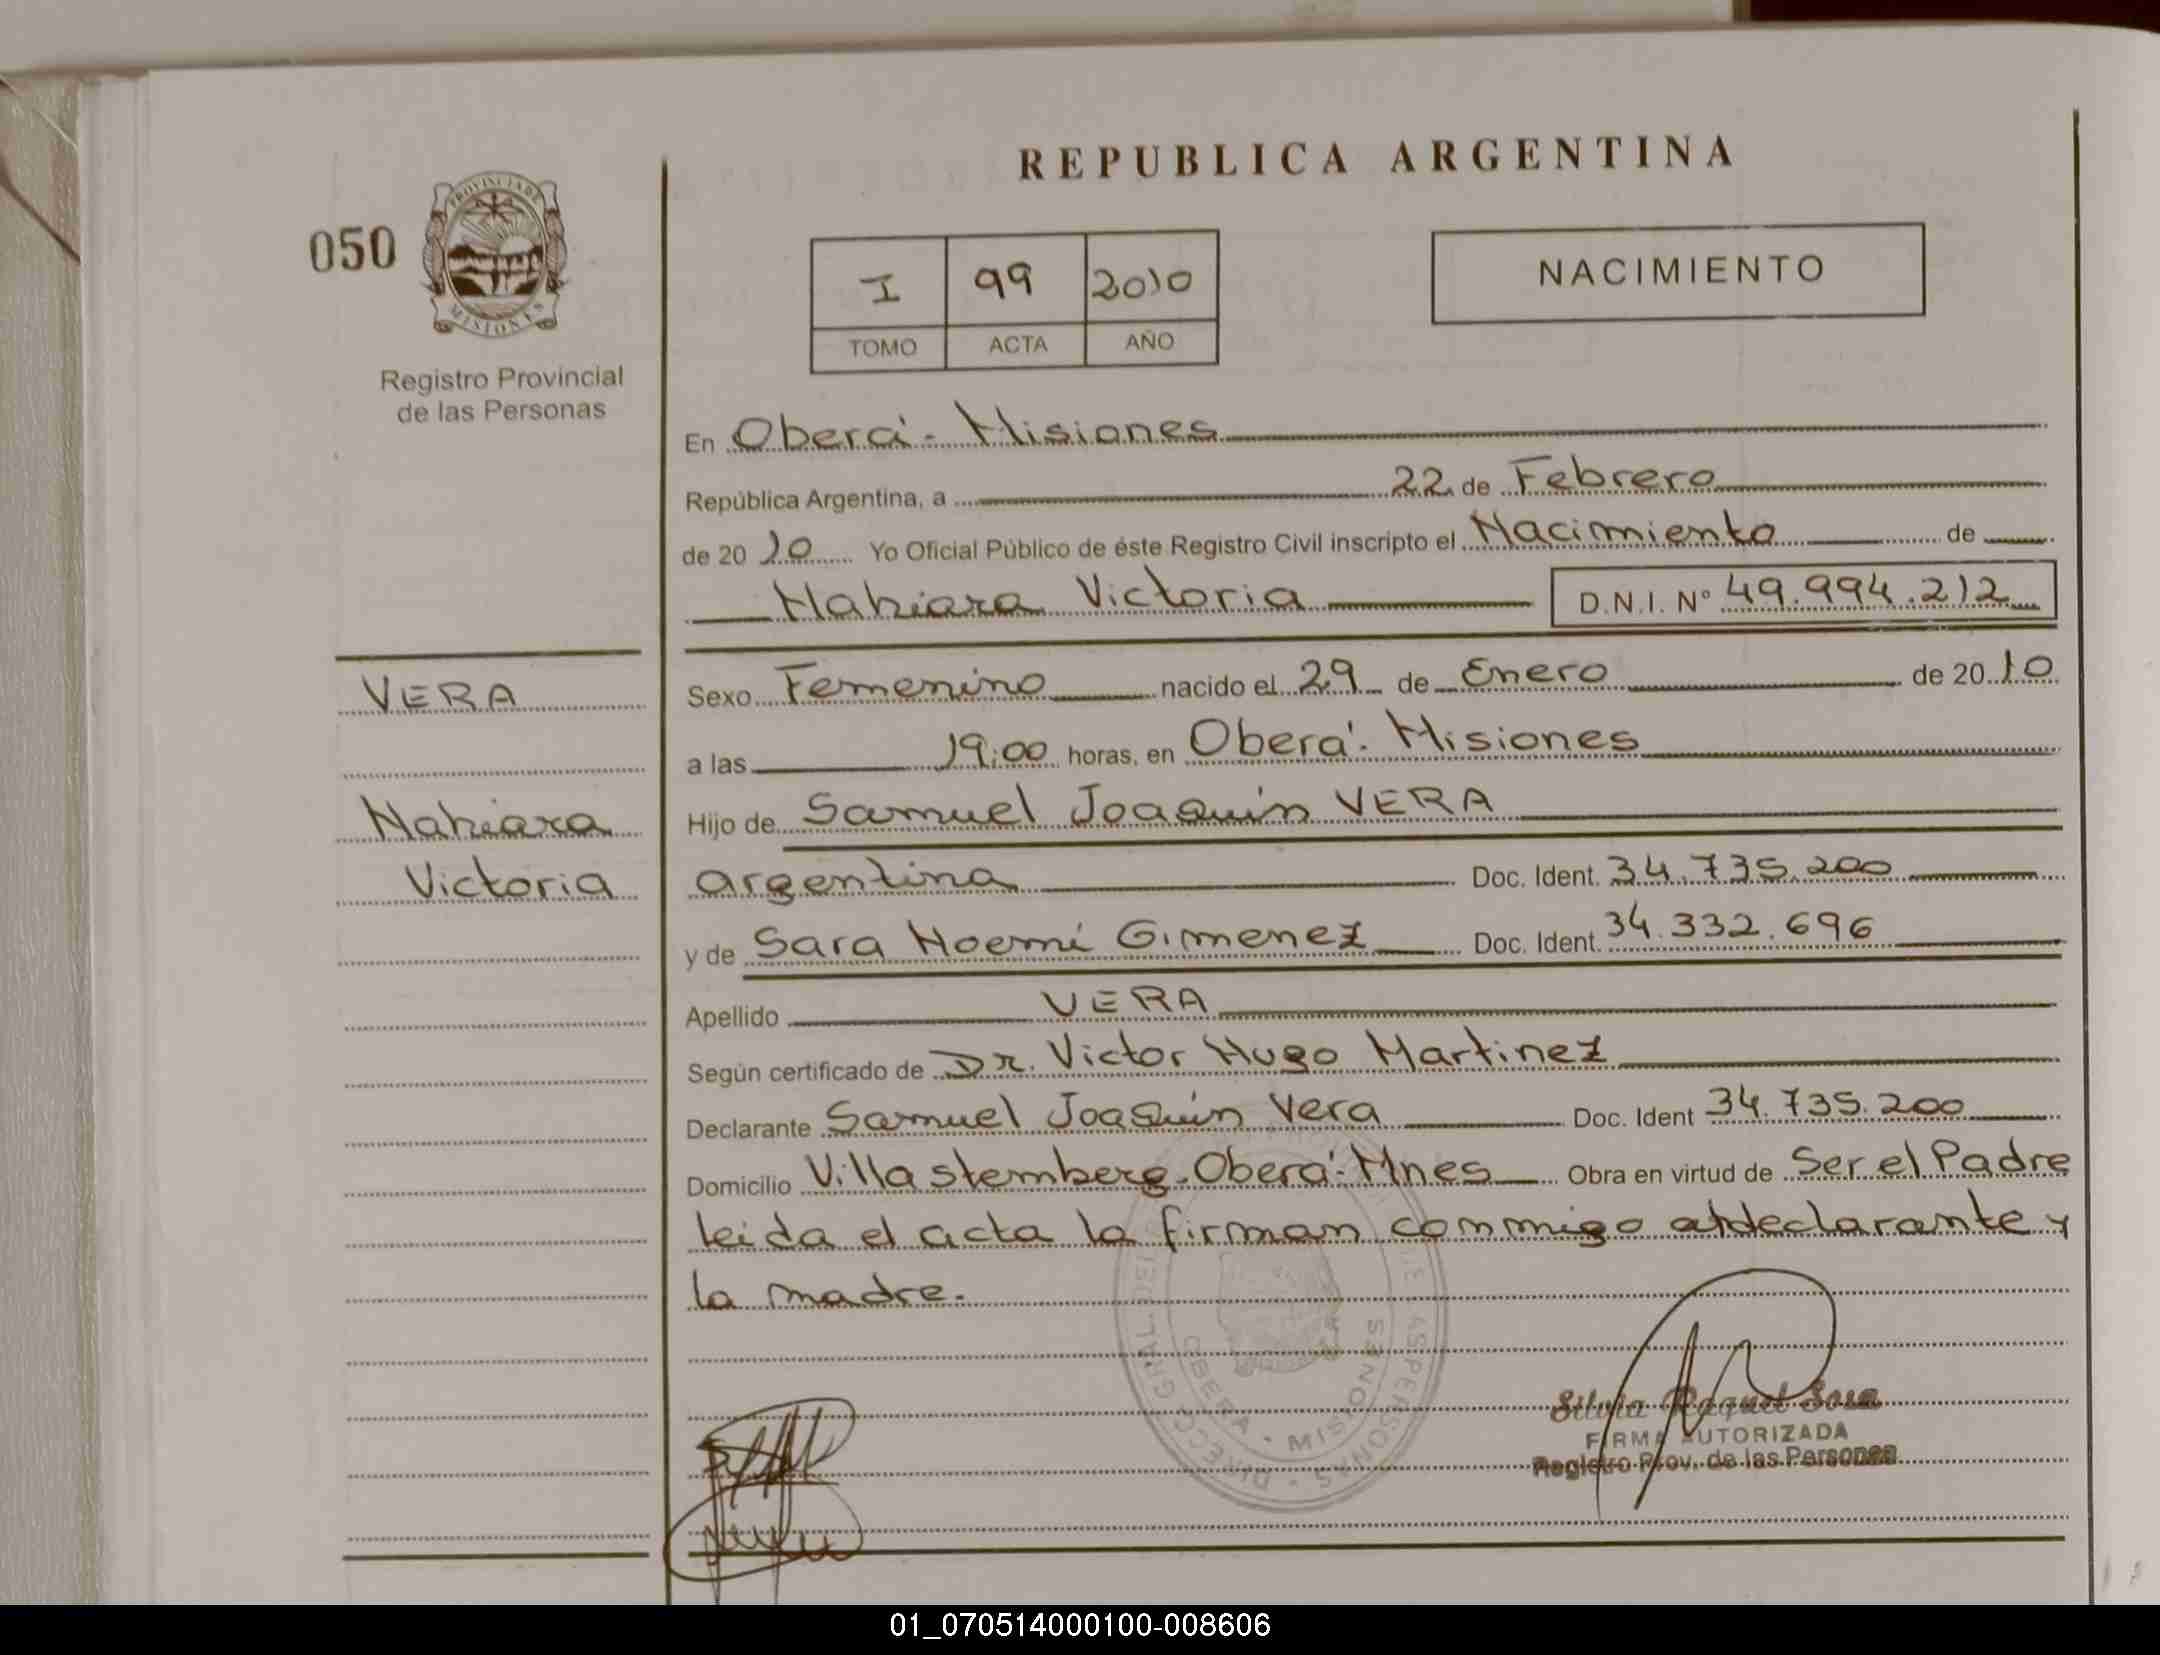 REPUBLICA ARGENTINA
050
PROVINCIA DE
MISIONES
Registro Provincial
de las Personas
I 99 2010
TOMO ACTA AÑO
NACIMIENTO
En Oberá - Misiones
República Argentina, a 22 de Febrero
de 20 10 Yo Oficial Público de éste Registro Civil inscripto el Nacimiento de
Nahiara Victoria D.N.I. Nº 49.994.212
VERA
Nahiara
Victoria
Sexo Femenino nacido el 29 de Enero de 20 10
a las 19:00 horas, en Oberá - Misiones
Hijo de Samuel Joaquín VERA
argentina Doc. Ident. 34.735.200
y de Sara Noemí Gimenez Doc. Ident. 34.332.696
Apellido VERA
Según certificado de Dr. Victor Hugo Martinez
Declarante Samuel Joaquín Vera Doc. Ident 34.735.200
Domicilio Villa Stemberg - Oberá - Mnes Obra en virtud de Ser el Padre
leida el acta la firman conmigo el declarante y
la madre.
OBERA - MISIONES
Silvia Raquel Sosa
FIRMA AUTORIZADA
Registro Prov. de las Personas
01_070514000100-008606